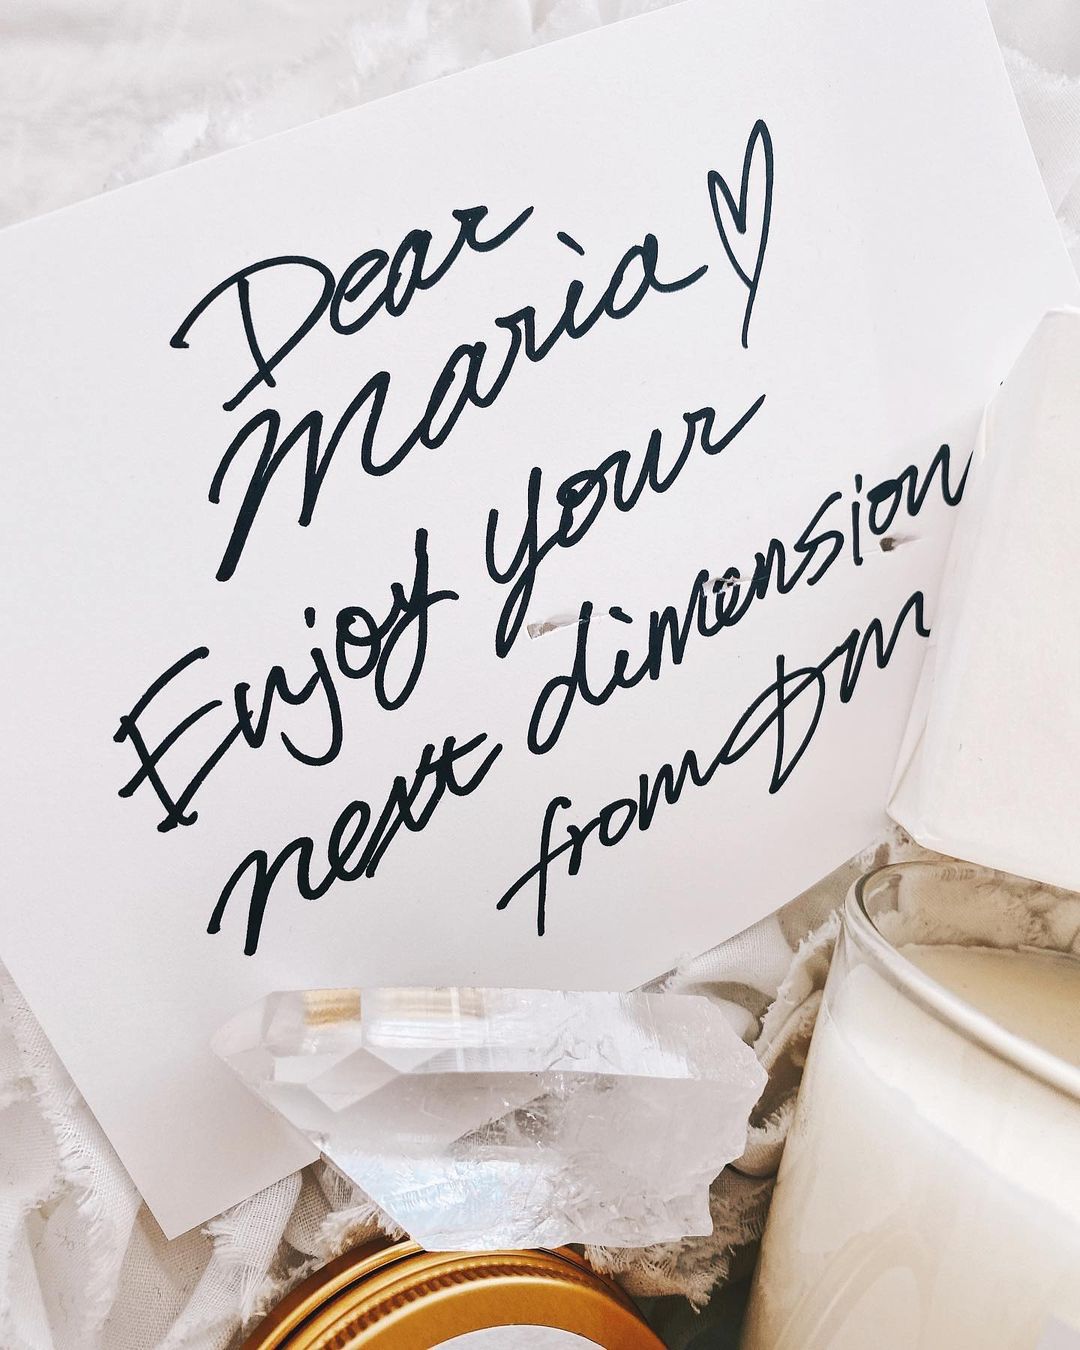 Dear
Maria
Enjoy your
next dimension
from Dm